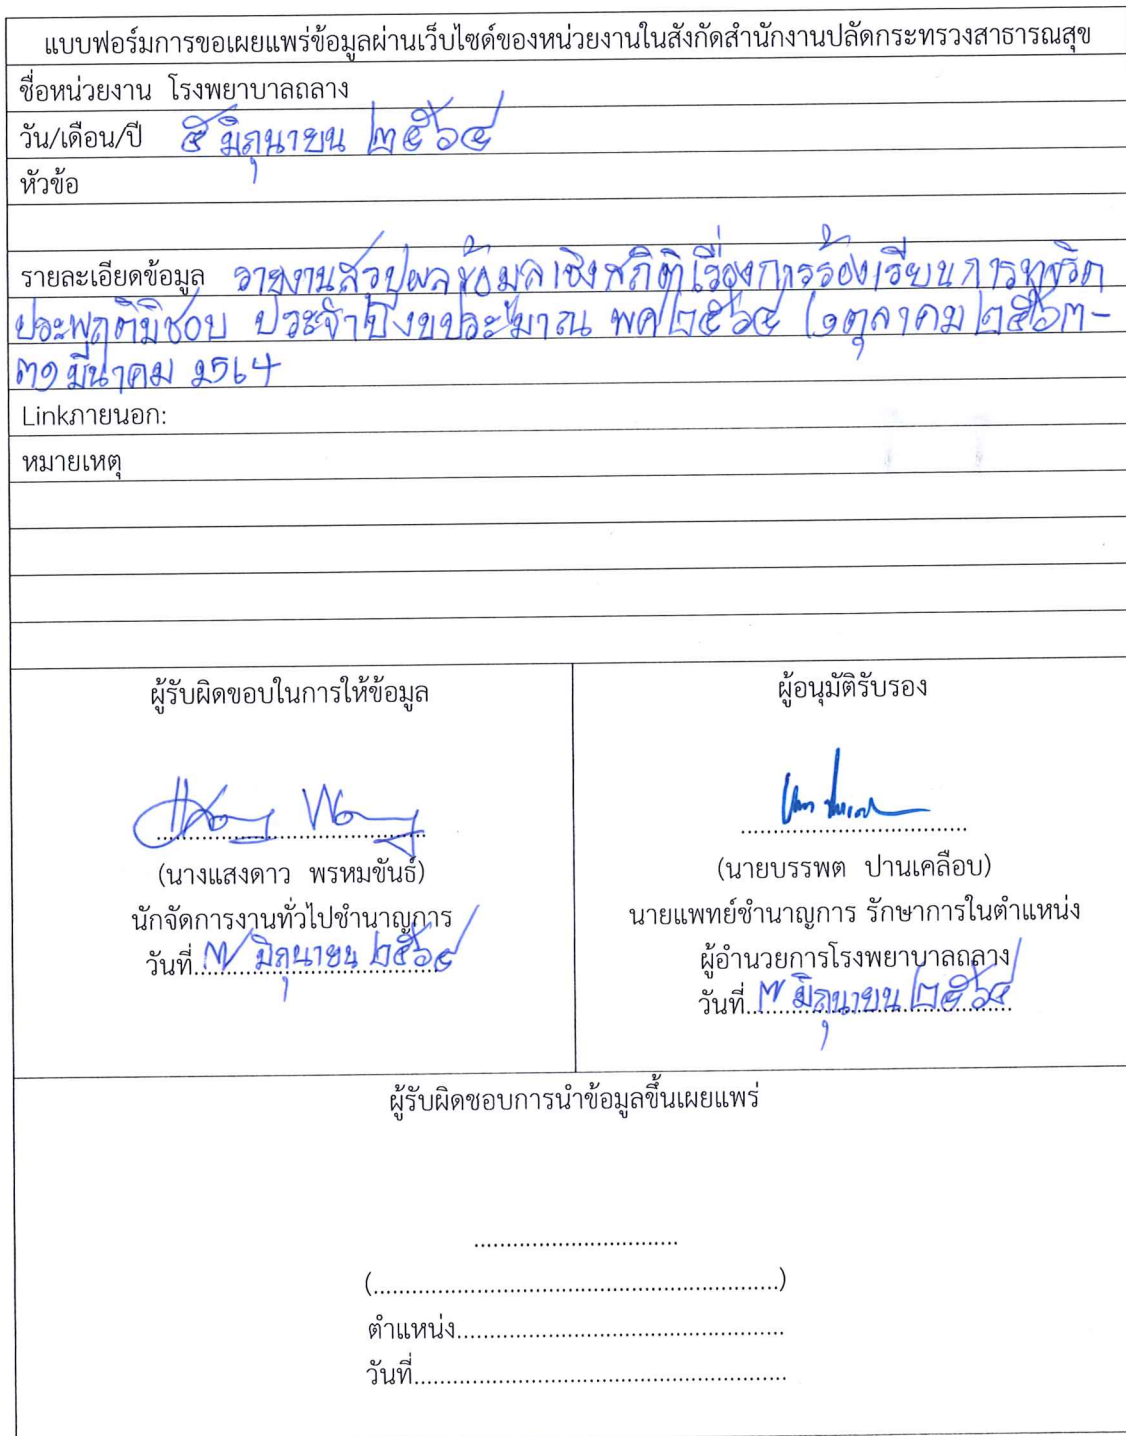 แบบฟอร์มการขอเผยแพร่ข้อมูลผ่านเว็บไซด์ของหน่วยงานในสังกัดสำนักงานปลัดกระทรวงสาธารณสุข
ชื่อหน่วยงาน โรงพยาบาลถลาง
วัน/เดือน/ปี ๕ มิถุนายน ๒๕๖๔
หัวข้อ
รายละเอียดข้อมูล รายงานสรุปผลข้อมูลเชิงสถิติเรื่องการร้องเรียนการทุจริต
ประพฤติมิชอบ ประจำปีงบประมาณ พศ ๒๕๖๔ (๑ ตุลาคม ๒๕๖๓-
๓๑ มีนาคม 2564
Linkภายนอก:
หมายเหตุ
ผู้รับผิดขอบในการให้ข้อมูล
(นางแสงดาว พรหมขันธ์)
นักจัดการงานทั่วไปชำนาญการ
วันที่ ๗ มิถุนายน ๒๕๖๔
ผู้อนุมัติรับรอง
(นายบรรพต ปานเคลือบ)
นายแพทย์ชำนาญการ รักษาการในตำแหน่ง
ผู้อำนวยการโรงพยาบาลถลาง
วันที่ ๗ มิถุนายน ๒๕๖๔
ผู้รับผิดชอบการนำข้อมูลขึ้นเผยแพร่
..............................
(..............................................................)
ตำแหน่ง..................................................
วันที่.........................................................